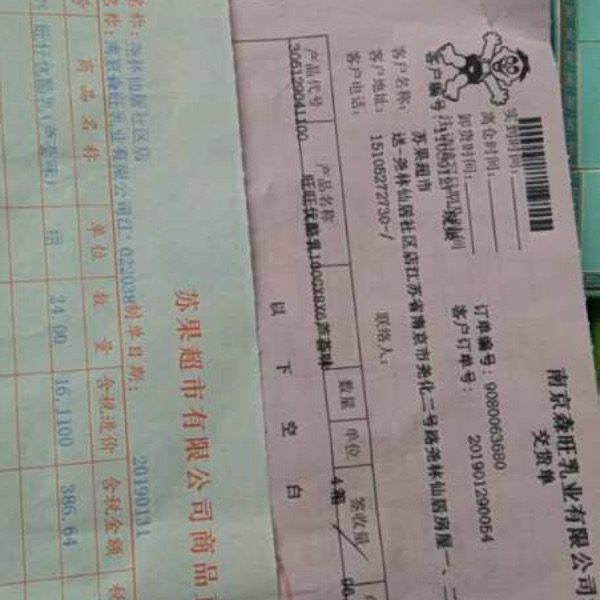 南京森旺乳业有限公司
交货单
订单编号：9080063680
客户订单号：201901290054
实到时间：
离仓时间：
卸货时间：
客户编号：
客户名称：苏果超市
客户地址：送-尧林仙居社区店江苏省南京市尧化二号路尧林仙居房屋一、二
客户电话：15105272730-/ 联系人：
产品代号 产品名称 数量 单位 签收量
305129041100 旺旺优酪乳100GX8X6芦荟味 4 箱
以下空白
苏果超市有限公司商品
名称：尧林仙居社区店
名称：南京森旺乳业有限公司江 022038 制单日期：20190131
商品名称 单位 数量 含税进价 含税金额
24.00 16.1100 386.64